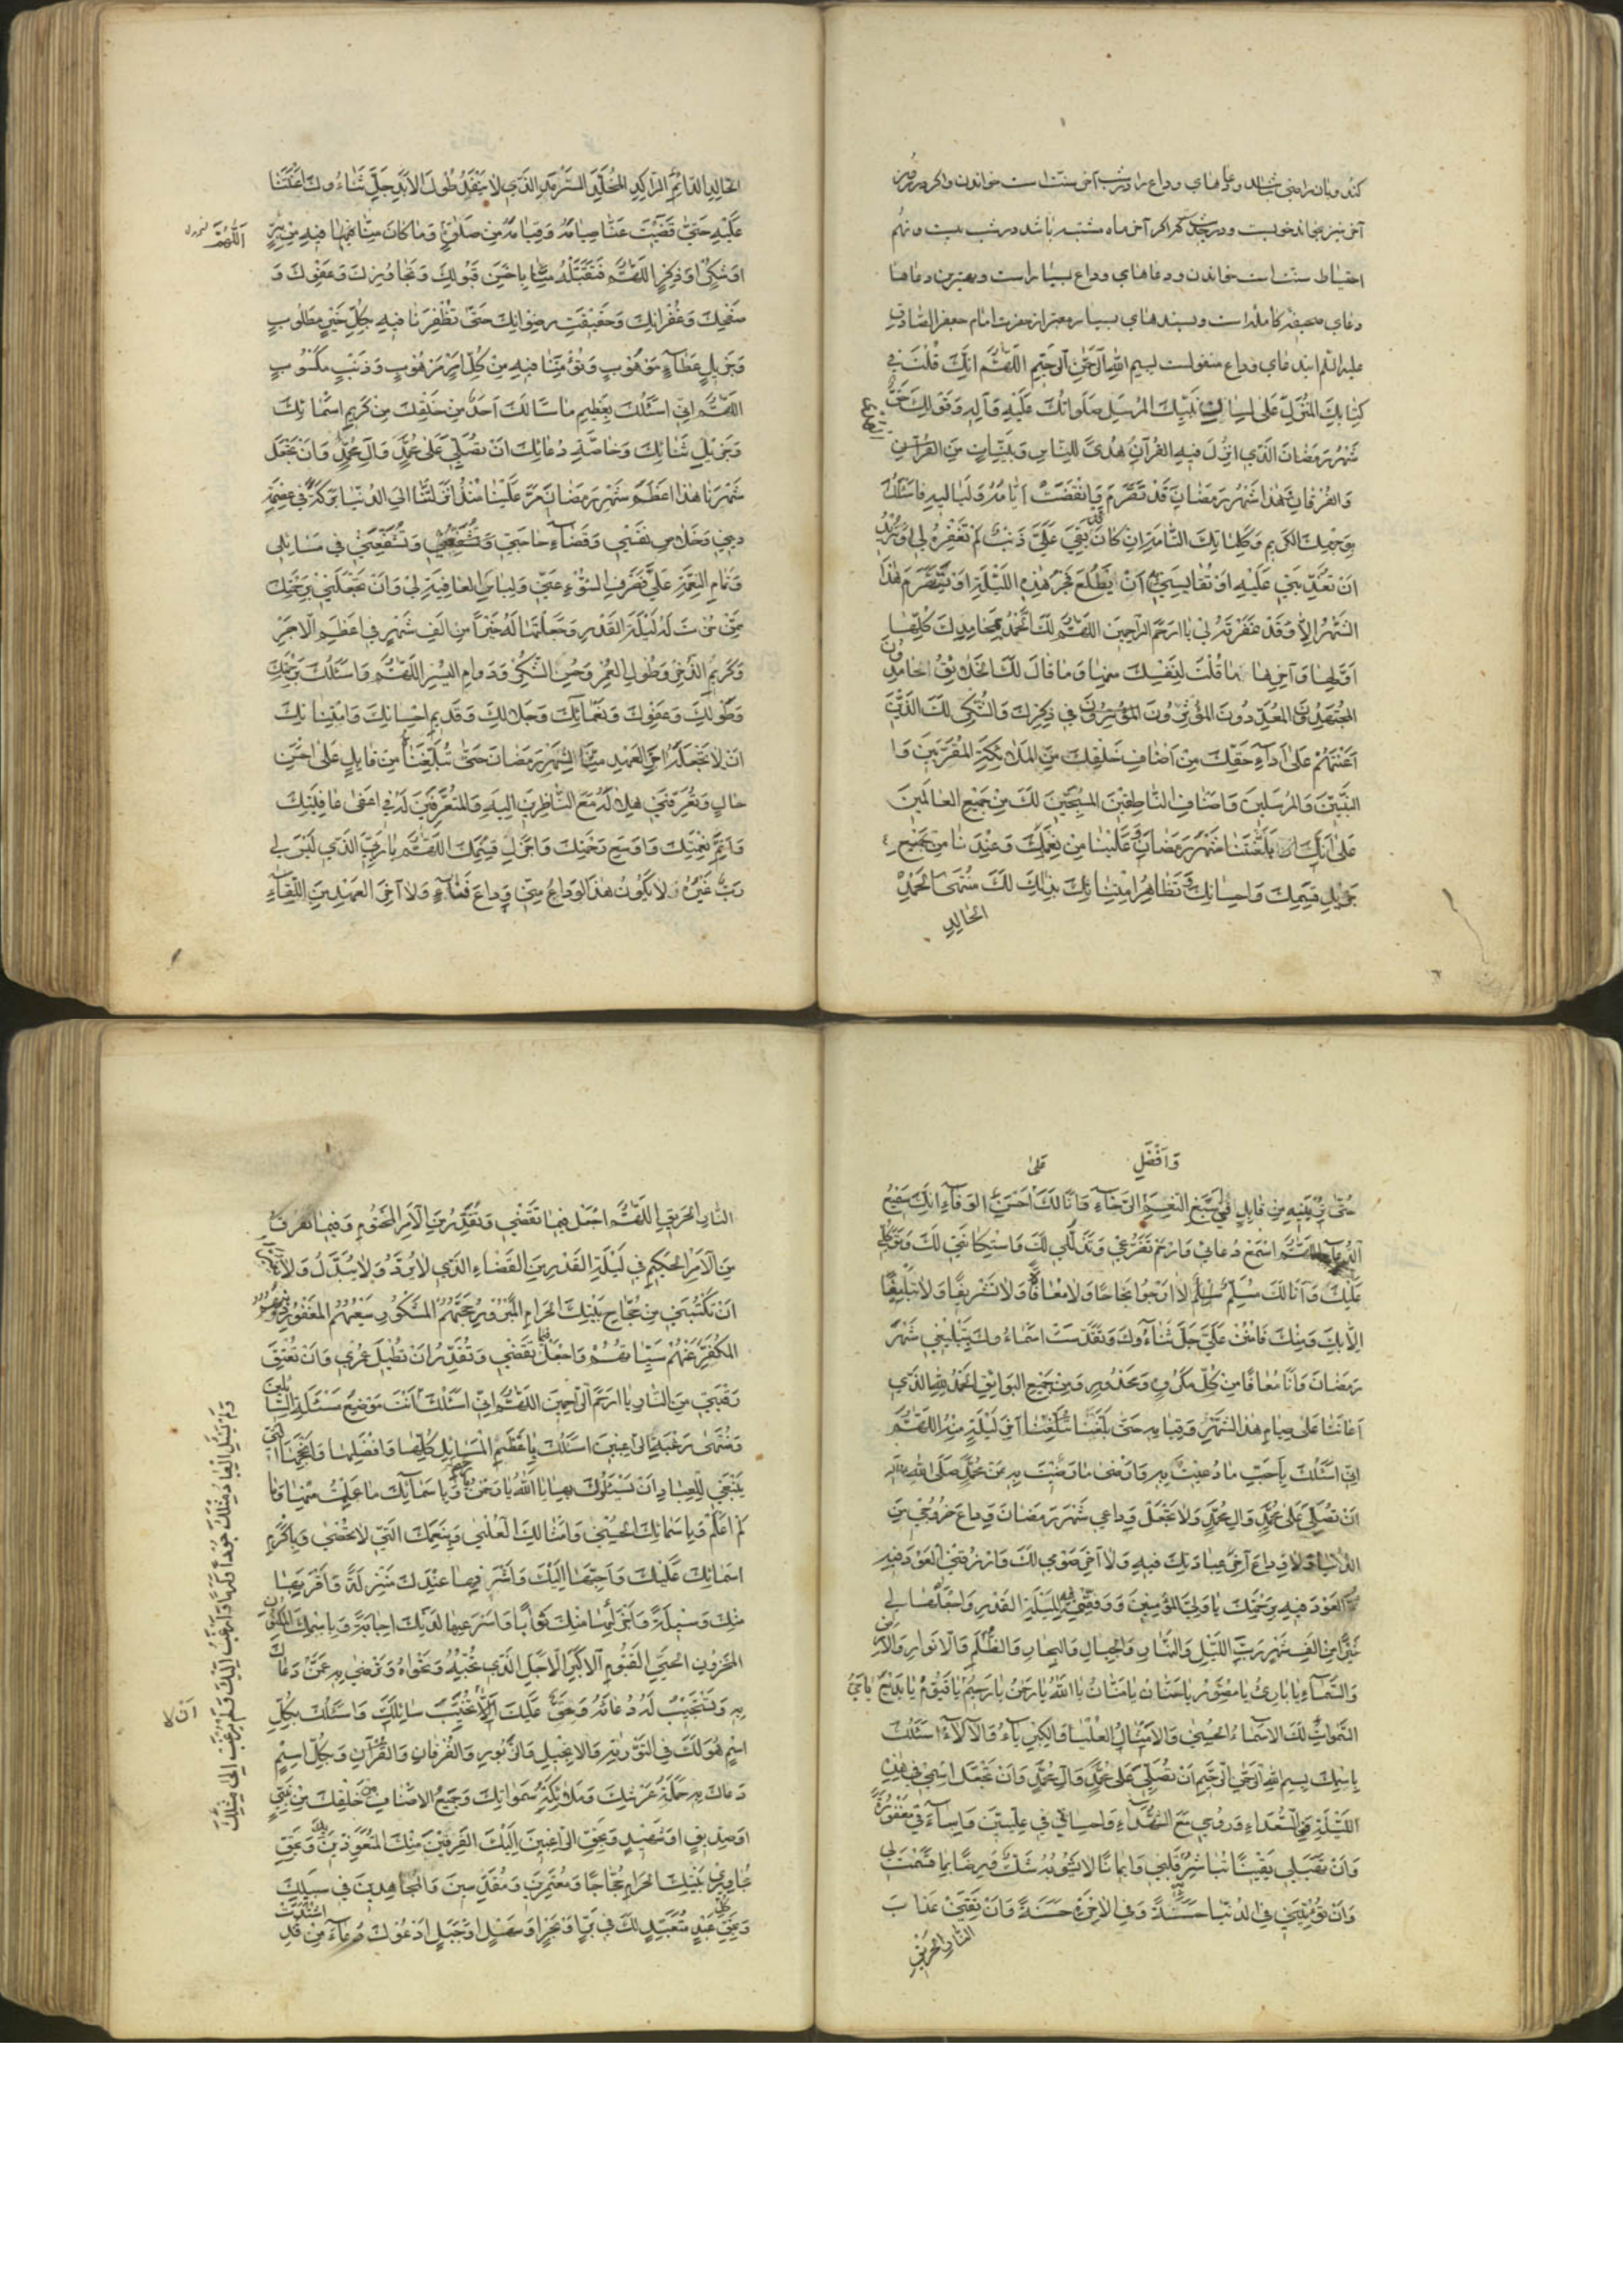 کند و بان راضی باشد و دعاهای وداع را در شب آخر سنتست خواندن و اگر در روز
آخر نیز بخواند خوبست و در جدیث که اگر آخر ماه مشتبه باشد در شب بیست و نهم
احتیاط سنت است خواندن و دعاهای وداع بسیار است و بهترین دعاها
دعای صحیفه کامله است و بسندهای بسیار معتبر از حضرت امام جعفر الصادق
علیه السلم ایند عای وداع منقولست بسم الله الرحمن الرحیم اللهم انک قلت فی
کتابک المنزل علی لسان نبیک المرسل صلواتک علیه و آله و قولک حق
شهر رمضان الذی انزل فیه القرآن هدی للناس و بینات من القرآن
والفرقان و هذا شهر رمضان قد تصرم و انقضت ایامه و لیالیه فاسئلک
بوجهک الکریم و کلماتک التامة ان کان بقی علی ذنب لم تغفره لی او ترید
ان تعذبنی علیه او تقایسنی به ان یطلع فجر هذه اللیلة او یتصرم هذا
الشهر الا و قد غفرته لی یا ارحم الراحمین اللهم لک الحمد بمحامدک کلها
اولها و آخرها ما قلت لنفسک منها و ما قال لک الخلایق الحامدون
المجتهدون المعددون المؤثرون فی ذکرک و الشکر لک الذین
اعنتهم علی اداء حقک من اصناف خلقک من الملائکة المقربین و ا
النبیین و المرسلین و اصناف الناطقین المسبحین لک من جمیع العالمین
علی انک بلغتنا شهر رمضان و علینا من نعمک و عندنا من
جزیل قسمک و احسانک و تظاهر امتنانک بذلک لک منتهی الحمد
الخالد
الخالد الدائم الراکد المخلد السرمد الذی لا ینفد طول الابد جل ثناءوک اعنتنا
علیه حتی قضیت عنا صیامه و قیامه من صلوة و ما کان منا فیه من بر
اللهم
او شکر او ذکر اللهم فتقبله منا باحسن قبولک و تجاوزک و عفوک و
صفحک و غفرانک و حقیقة رضوانک حتی تظفرنا فیه بکل خیر مطلوب
و جزیل عطاء موهوب و تؤمننا فیه من کل امر مرهوب و ذنب مکسوب
اللهم انی اسئلک بعظیم ما سالک احد من خلقک من کریم اسمائک
و جزیل ثنائک و خاصة دعائک ان تصلی علی محمد و آل محمد و ان تجعل
شهرنا هذا اعظم شهر رمضان مر علینا منذ انزلتنا الی الدنیا برکة فی عصمة
دینی و خلاص نفسی و قضاء حاجتی و تشفعنی فی مسایلی
و تمام النعمة علی و صرف السوء عنی و لباس العافیة لی و ان تجعلنی برحمتک
ممن له لیلة القدر و جعلتها له خیرا من الف شهر فی اعظم الاجر
و کریم الذخر و طول العمر و حسن الشکر و دوام الیسر اللهم و اسئلک برحمتک
و طولک و عفوک و نعمائک و جلالک و قدیم احسانک و امتنانک
ان لا تجعله آخر العهد منا لشهر رمضان حتی تبلغناه من قابل علی احسن
حال و تعرفنی هلاله مع الناظرین الیه و المتعرفین له فی اعفی عافیتک
و اتم نعمتک و اوسع رحمتک و اجزل قسمک اللهم یا رب الذی لیس لی
رب غیره و لا یکون هذا الوداع منی وداع فناء و لا آخر العهد من اللقاء
و افضل
حتی ترینیه من قابل فی اسبغ النعم الرخاء و انا لک احسن الوفاء انک سمیع
الدعاء اللهم اسمع دعائی و ارحم تضرعی و تذللی لک و استکانتی لک و توکلی
علیک و انا لک مسلم لا ارجوا نجاحا و لا معافاة و لا تشریفا و لا تبلیغا
الا بک و منک فامنن علی جل ثناءوک و تقدست اسماءوک بتبلیغی شهر
رمضان و انا معافا من کل مکروه و محذور و من جمیع البوایق الحمد لله الذی
اعاننا علی صیام هذا الشهر و قیامه حتی بلغنا آخر لیلة منه اللهم
انی اسئلک باحب ما دعیت به و ارضی ما رضیت به عن محمد صلی الله علیه
ان تصلی علی محمد و آل محمد و لا تجعل وداعی شهر رمضان وداع خروجی من
الدنیا و لا وداع آخر عبادتک فیه و لا آخر صومی لک و ارزقنی العود فیه
العود فیه برحمتک یا ولی المؤمنین و وفقنی فیه للیلة القدر و اجعلها لی
خیرا من الف شهر رب اللیل و النهار و الجبال و البحار و الظلم و الانوار و الارض
و السماء یا باری یا مصور یا حنان یا منان یا الله یا رحمن یا رحیم یا قیوم یا بدیع
السموات لک الاسماء الحسنی و الامثال العلیا و الکبریاء و الآلاء اسئلک
باسمک بسم الله الرحمن الرحیم ان تصلی علی محمد و آل محمد و ان تجعل اسمی فی هذه
اللیلة فی السعداء و روحی مع الشهداء و احسانی فی علیین و اساءتی مغفورة
و ان تهب لی یقینا تباشر به قلبی و ایمانا لا یشوبه شک و رضا بما قسمت لی
و ان تؤتینی فی الدنیا حسنة و فی الآخرة حسنة و ان تقینی عذاب
النار الحریق
النار الحریق اللهم اجعل فیما تقضی و تقدر من الامر المحتوم و فیما تفرق
من الامر الحکیم فی لیلة القدر من القضاء الذی لا یرد و لا یبدل و لا
ان تکتبنی من حجاج بیتک الحرام المبرور حجهم المشکور سعیهم المغفور
المکفر عنهم سیئاتهم و اجعل فیما تقضی و تقدر ان تطیل عمری و ان تعتق
رقبتی من النار یا ارحم الراحمین اللهم انی اسئلک انت موضع مسئلة السائلین
و منتهی رغبة الراغبین اسئلک باعظم المسایل کلها و افضلها و انجحها التی
ینبغی للعباد ان یسئلوک بها یا الله یا رحمن و باسمائک ما علمت منها و ما
لم اعلم و باسمائک الحسنی و امثالک العلیا و بنعمک التی لا تحصی و باکرم
اسمائک علیک و احبها الیک و اشرفها عندک منزلة و اقربها
منک وسیلة و اجزلها منک ثوابا و اسرعها لدیک اجابة و باسمک المکنون
المخزون الحی القیوم الاکبر الاجل الذی تحبه و تهواه و ترضی به عمن دعاک
به و تستجیب له دعائه و حق علیک الا تخیب سائلک و اسئلک بکل
ان لا
اسم هو لک فی التوریة و الانجیل و الزبور و الفرقان و القرآن و بکل اسم
دعاک به حملة عرشک و ملائکة سمواتک و جمیع الاصناف من خلقک من نبی
او صدیق او شهید و بحق الراغبین الیک الفرقین منک المتعوذین بک و بحق
مجاوری بیتک الحرام حجاجا و معتمرین و مقدسین و المجاهدین فی سبیلک
و بحق عبد متعبد لک فی بر او بحر او سهل او جبل ادعوک دعاء من قد
اشتدت
و لم یسئل العباد مثلک جودا و کرما و ارغب الیک و لم یرغب الی مثلک